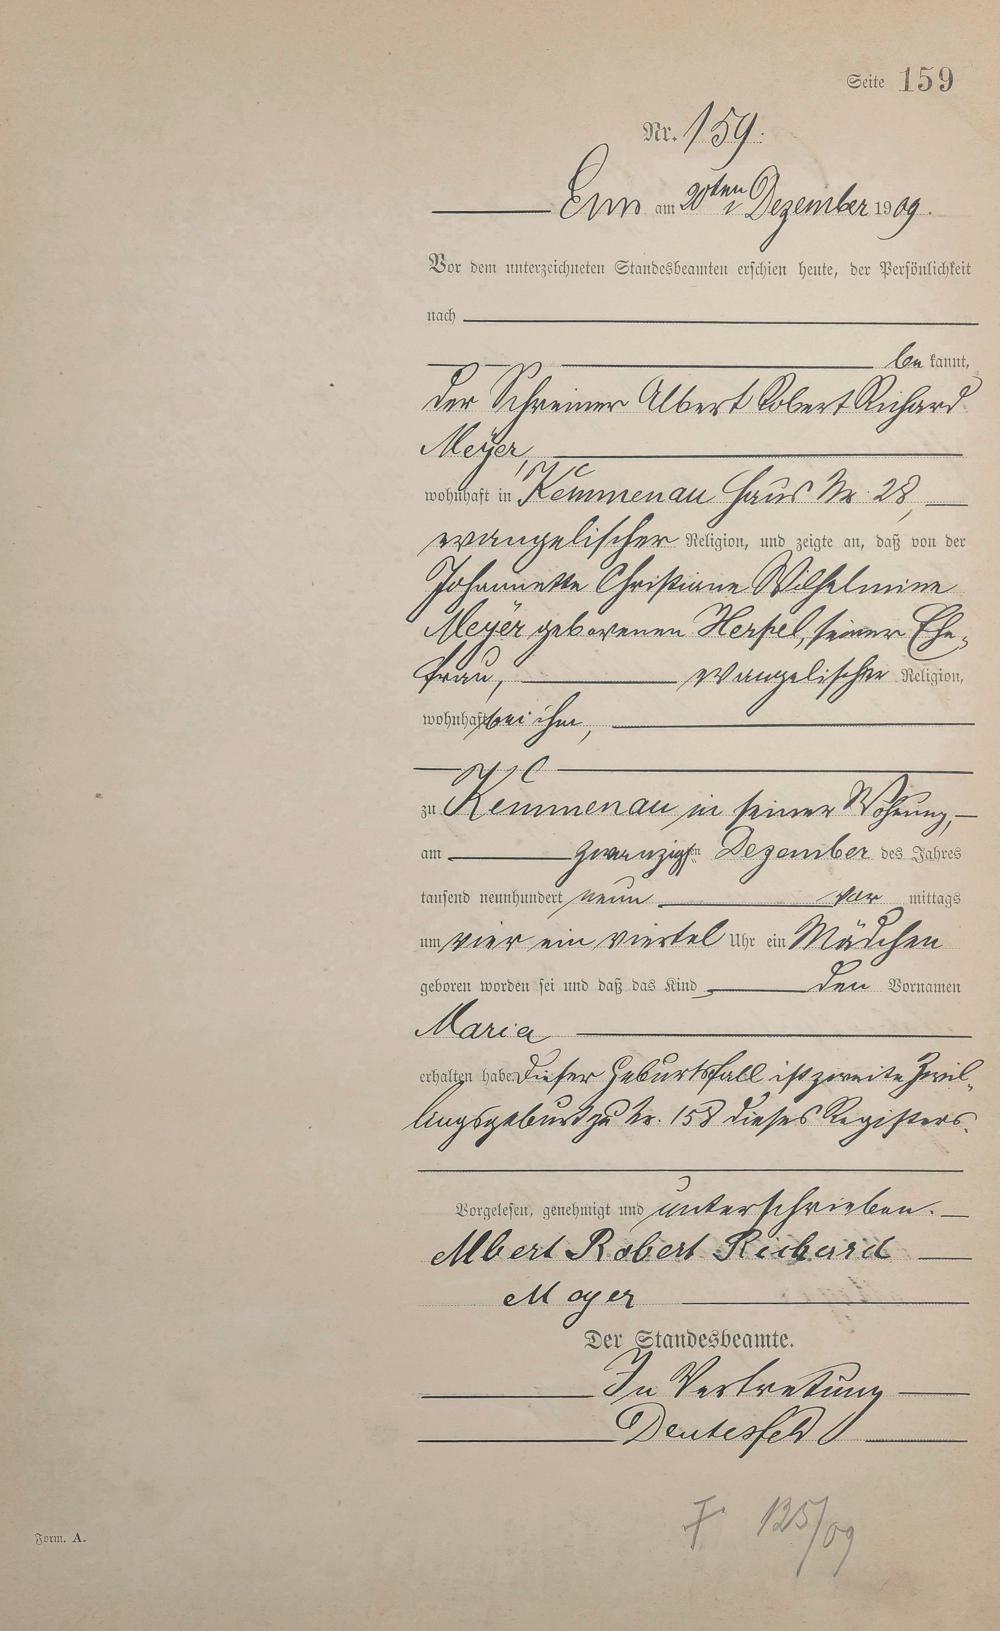 Seite 159
Nr. 159.
Ems am 20ten Dezember 1909.
Vor dem unterzeichneten Standesbeamten erschien heute, der Persönlichkeit
nach
be kannt,
der Schreiner Albert Robert Richard
Meyer,
wohnhaft in Kemmenau Haus Nr. 28,
evangelischer Religion, und zeigte an, daß von der
Johannette Christiane Wilhelmine
Meyer geborenen Herpel, seiner Ehe-
frau, evangelischer Religion,
wohnhaft bei ihm,
zu Kemmenau in seiner Wohnung,
am zwanzigsten Dezember des Jahres
tausend neunhundert neun vor mittags
um vier ein viertel Uhr ein Mädchen
geboren worden sei und daß das Kind den Vornamen
Maria
erhalten habe. Dieser Geburtsfall ist zweite Zwil-
lingsgeburt zu Nr. 158 dieses Registers.
Vorgelesen, genehmigt und unterschrieben.
Albert Robert Richard
Meyer
Der Standesbeamte.
In Vertretung
Deutesfeld
125/09
Form. A.